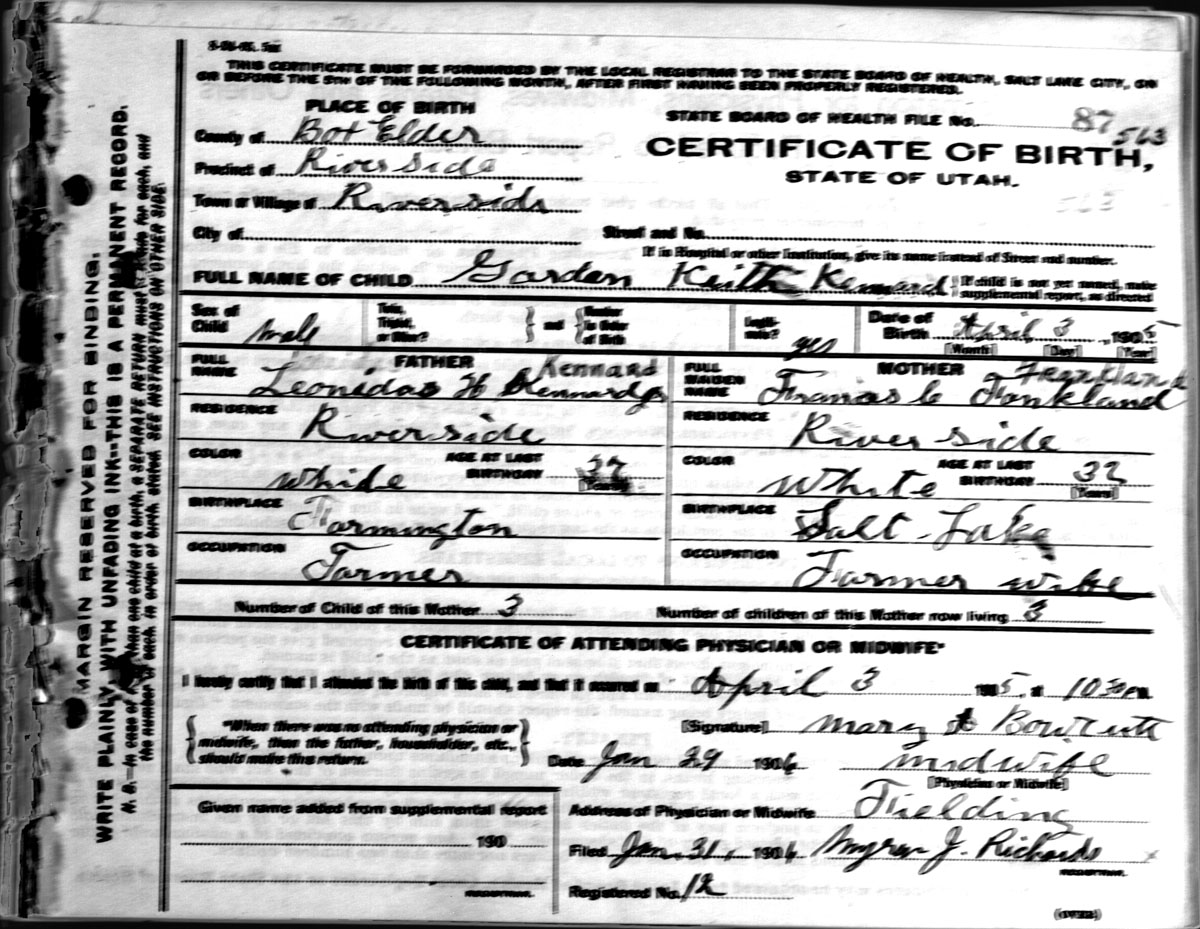 THIS CERTIFICATE MUST BE FORWARDED BY THE LOCAL REGISTRAR TO THE STATE BOARD OF HEALTH, SALT LAKE CITY, ON
OR BEFORE THE 5TH OF THE FOLLOWING MONTH, AFTER FIRST HAVING BEEN PROPERLY REGISTERED.
PLACE OF BIRTH
STATE BOARD OF HEALTH FILE No. 87 563
County of Box Elder
CERTIFICATE OF BIRTH,
Precinct of Riverside
STATE OF UTAH.
Town or Village of Riverside
563
City of
Street and No.
If in Hospital or other Institution, give its name instead of Street and number.
FULL NAME OF CHILD Garden Keith Kennard
If child is not yet named, make
supplemental report, as directed
Sex of Child male
Twin, Triplet, or Other?
and
Number in Order of Birth
Legitimate? yes
Date of Birth April 3, 1905
[Month] [Day] [Year]
FATHER Kennard
FULL NAME Leonidas H Kennard Jr
MOTHER Frankland
FULL MAIDEN NAME Frances C Fankland
RESIDENCE Riverside
RESIDENCE River side
COLOR White AGE AT LAST BIRTHDAY [Years]
COLOR White AGE AT LAST BIRTHDAY 32 [Years]
BIRTHPLACE Farmington
BIRTHPLACE Salt Lake
OCCUPATION Farmer
OCCUPATION Farmer wife
Number of Child of this Mother 3
Number of children of this Mother now living 3
CERTIFICATE OF ATTENDING PHYSICIAN OR MIDWIFE*
I hereby certify that I attended the birth of this child, and that it occurred on April 3 1905, at 10 30 PM
*When there was no attending physician or
midwife, then the father, householder, etc.,
should make this return.
[Signature] Mary
Date Jan 29 1906 midwife
[Physician or Midwife]
Given name added from supplemental report
190
REGISTRAR.
Address of Physician or Midwife Fielding
Filed Jan. 31, 1906 Myren J. Richards
REGISTRAR.
Registered No. 12
(OVER)
MARGIN RESERVED FOR BINDING.
WRITE PLAINLY, WITH UNFADING INK--THIS IS A PERMANENT RECORD.
N. B.—In case of more than one child at a birth, a SEPARATE RETURN must be made for each, and
the number of each, in order of birth, stated. SEE INSTRUCTIONS ON OTHER SIDE.